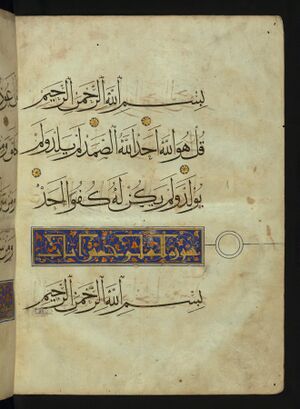 بسم الله الرحمن الرحيم
قل هو الله احد الله الصمد لم يلد ولم
يولد ولم يكن له كفوا احد
سورة الفلق خمس ايات
بسم الله الرحمن الرحيم